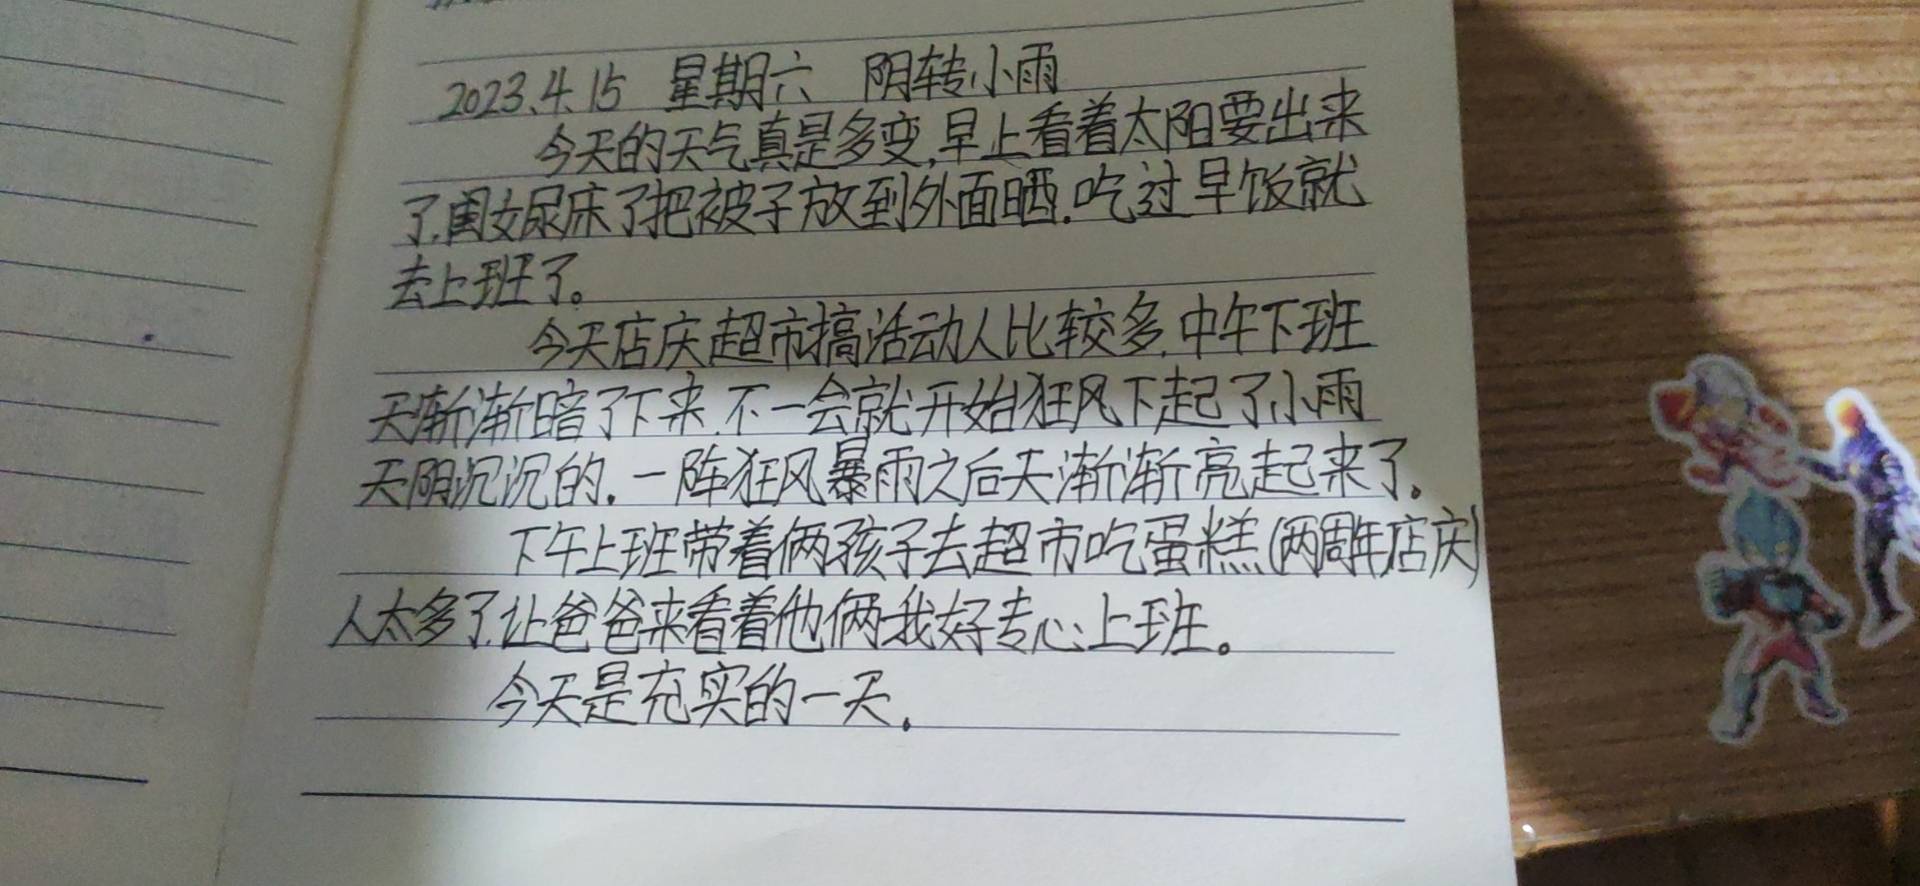 2023.4.15 星期六 阴转小雨
今天的天气真是多变,早上看着太阳要出来
了,闺女尿床了把被子放到外面晒.吃过早饭就
去上班了。
今天店庆超市搞活动人比较多.中午下班
天渐渐暗了下来.不一会就开始狂风下起了小雨
天阴沉沉的.一阵狂风暴雨之后天渐渐亮起来了.
下午上班带着俩孩子去超市吃蛋糕(两周年店庆)
人太多了,让爸爸来看着他俩我好专心上班。
今天是充实的一天.